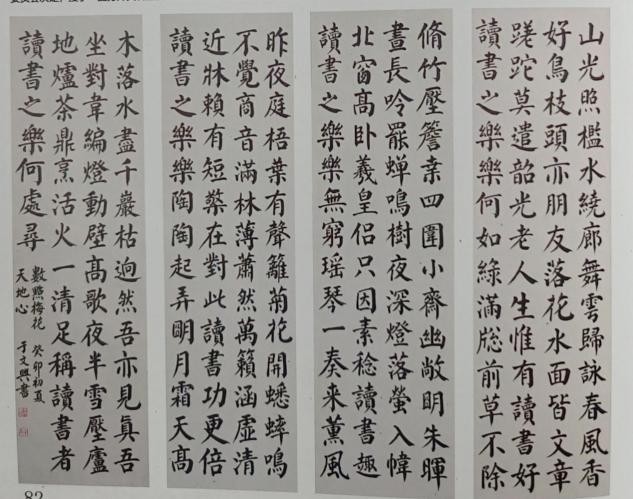 山光照檻水繞廊舞雩歸詠春風香
好鳥枝頭亦朋友落花水面皆文章
蹉跎莫遣韶光老人生惟有讀書好
讀書之樂樂何如綠滿牕前草不除
脩竹壓簷桒四圍小齋幽敞明朱暉
晝長吟罷蟬鳴樹夜深燈落螢入幃
北窗高卧羲皇侶只因素稔讀書趣
讀書之樂樂無窮瑶琴一奏来薰風
昨夜庭梧葉有聲籬菊花開蟋蟀鳴
不覺商音滿林薄蕭然萬籟涵虛清
近牀賴有短檠在對此讀書功更倍
讀書之樂樂陶陶起弄明月霜天高
木落水盡千巖枯迥然吾亦見真吾
坐對韋編燈動壁高歌夜半雪壓廬
地爐茶鼎烹活火一清足稱讀書者
讀書之樂何處尋
數點梅花 癸卯初夏
天地心 于文興書
82